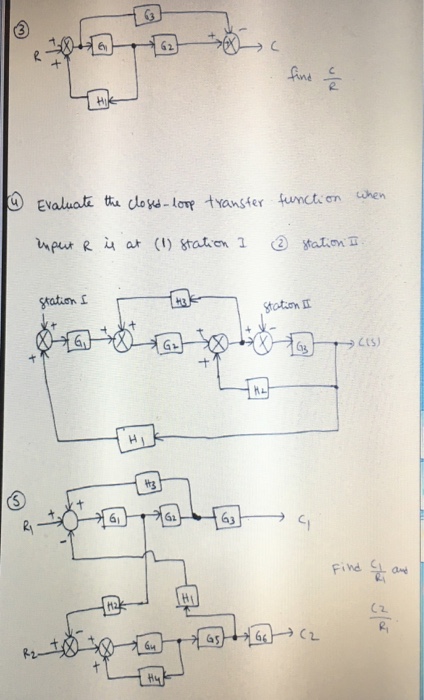 ③
G3
+ -
R + G1 G2 + C
+
H1
find C/R
④ Evaluate the closed-loop transfer function when
input R is at (1) station I ② station II
station I
H3
station II
+ + + + + -
G1 G2 G3 C(s)
+ +
H2
H1
⑤
H3
+ +
R1 G1 G2 G3 C1
-
Find C1/R1 and
C2/R1
H2 H1
-
R2 + + G4 G5 G6 C2
+
H4